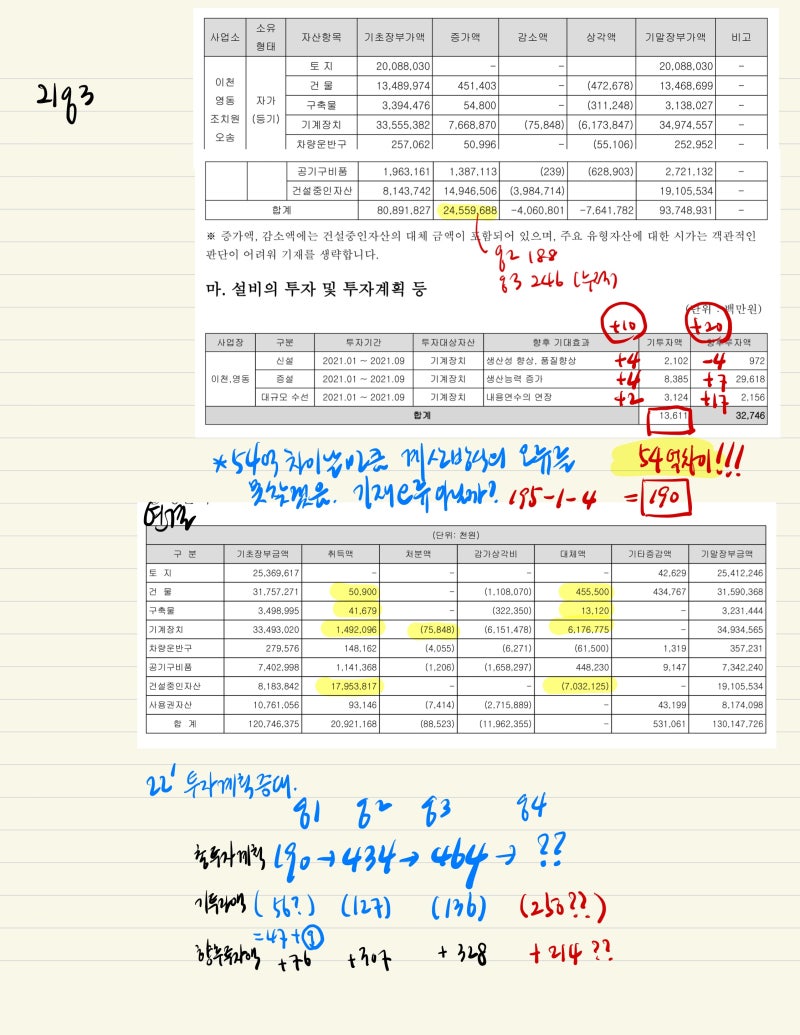 21q3
사업소 소유형태 자산항목 기초장부가액 증가액 감소액 상각액 기말장부가액 비고
이천 영동 조치원 오송 자가 (등기)
토 지 20,088,030 - - 20,088,030 -
건 물 13,489,974 451,403 - (472,678) 13,468,699 -
구축물 3,394,476 54,800 - (311,248) 3,138,027 -
기계장치 33,555,382 7,668,870 (75,848) (6,173,847) 34,974,557 -
차량운반구 257,062 50,996 - (55,106) 252,952 -
공기구비품 1,963,161 1,387,113 (239) (628,903) 2,721,132 -
건설중인자산 8,143,742 14,946,506 (3,984,714) 19,105,534 -
합계 80,891,827 24,559,688 -4,060,801 -7,641,782 93,748,931 -
※ 증가액, 감소액에는 건설중인자산의 대체 금액이 포함되어 있으며, 주요 유형자산에 대한 시가는 객관적인
판단이 어려워 기재를 생략합니다.
q2 188
q3 246 (누적)
마. 설비의 투자 및 투자계획 등
(단위 : 백만원)
+10 +20
사업장 구분 투자기간 투자대상자산 향후 기대효과 기투자액 향후투자액
이천,영동
신설 2021.01 ~ 2021.09 기계장치 생산성 향상, 품질향상 +4 2,102 -4 972
증설 2021.01 ~ 2021.09 기계장치 생산능력 증가 +4 8,385 +7 29,618
대규모 수선 2021.01 ~ 2021.09 기계장치 내용연수의 연장 +2 3,124 +17 2,156
합계 13,611 32,746
*54억 차이날만큼 계산방식의 오류를 54억차이!!!
못찾겠음. 기재오류 아닐까? 195-1-4 = 190
연결
(단위: 천원)
구 분 기초장부금액 취득액 처분액 감가상각비 대체액 기타증감액 기말장부금액
토 지 25,369,617 - - - - 42,629 25,412,246
건 물 31,757,271 50,900 - (1,108,070) 455,500 434,767 31,590,368
구축물 3,498,995 41,679 - (322,350) 13,120 - 3,231,444
기계장치 33,493,020 1,492,096 (75,848) (6,151,478) 6,176,775 - 34,934,565
차량운반구 279,576 148,162 (4,055) (6,271) (61,500) 1,319 357,231
공기구비품 7,402,998 1,141,368 (1,206) (1,658,297) 448,230 9,147 7,342,240
건설중인자산 8,183,842 17,953,817 - - (7,032,125) - 19,105,534
사용권자산 10,761,056 93,146 (7,414) (2,715,889) 43,199 8,174,098
합 계 120,746,375 20,921,168 (88,523) (11,962,355) - 531,061 130,147,726
22' 투자계획증대.
q1 q2 q3 q4
총투자계획 190 → 434 → 464 → ??
기투자액 (56?) (127) (136) (250??)
=47+9
향후투자액 +76 +307 +328 +214??